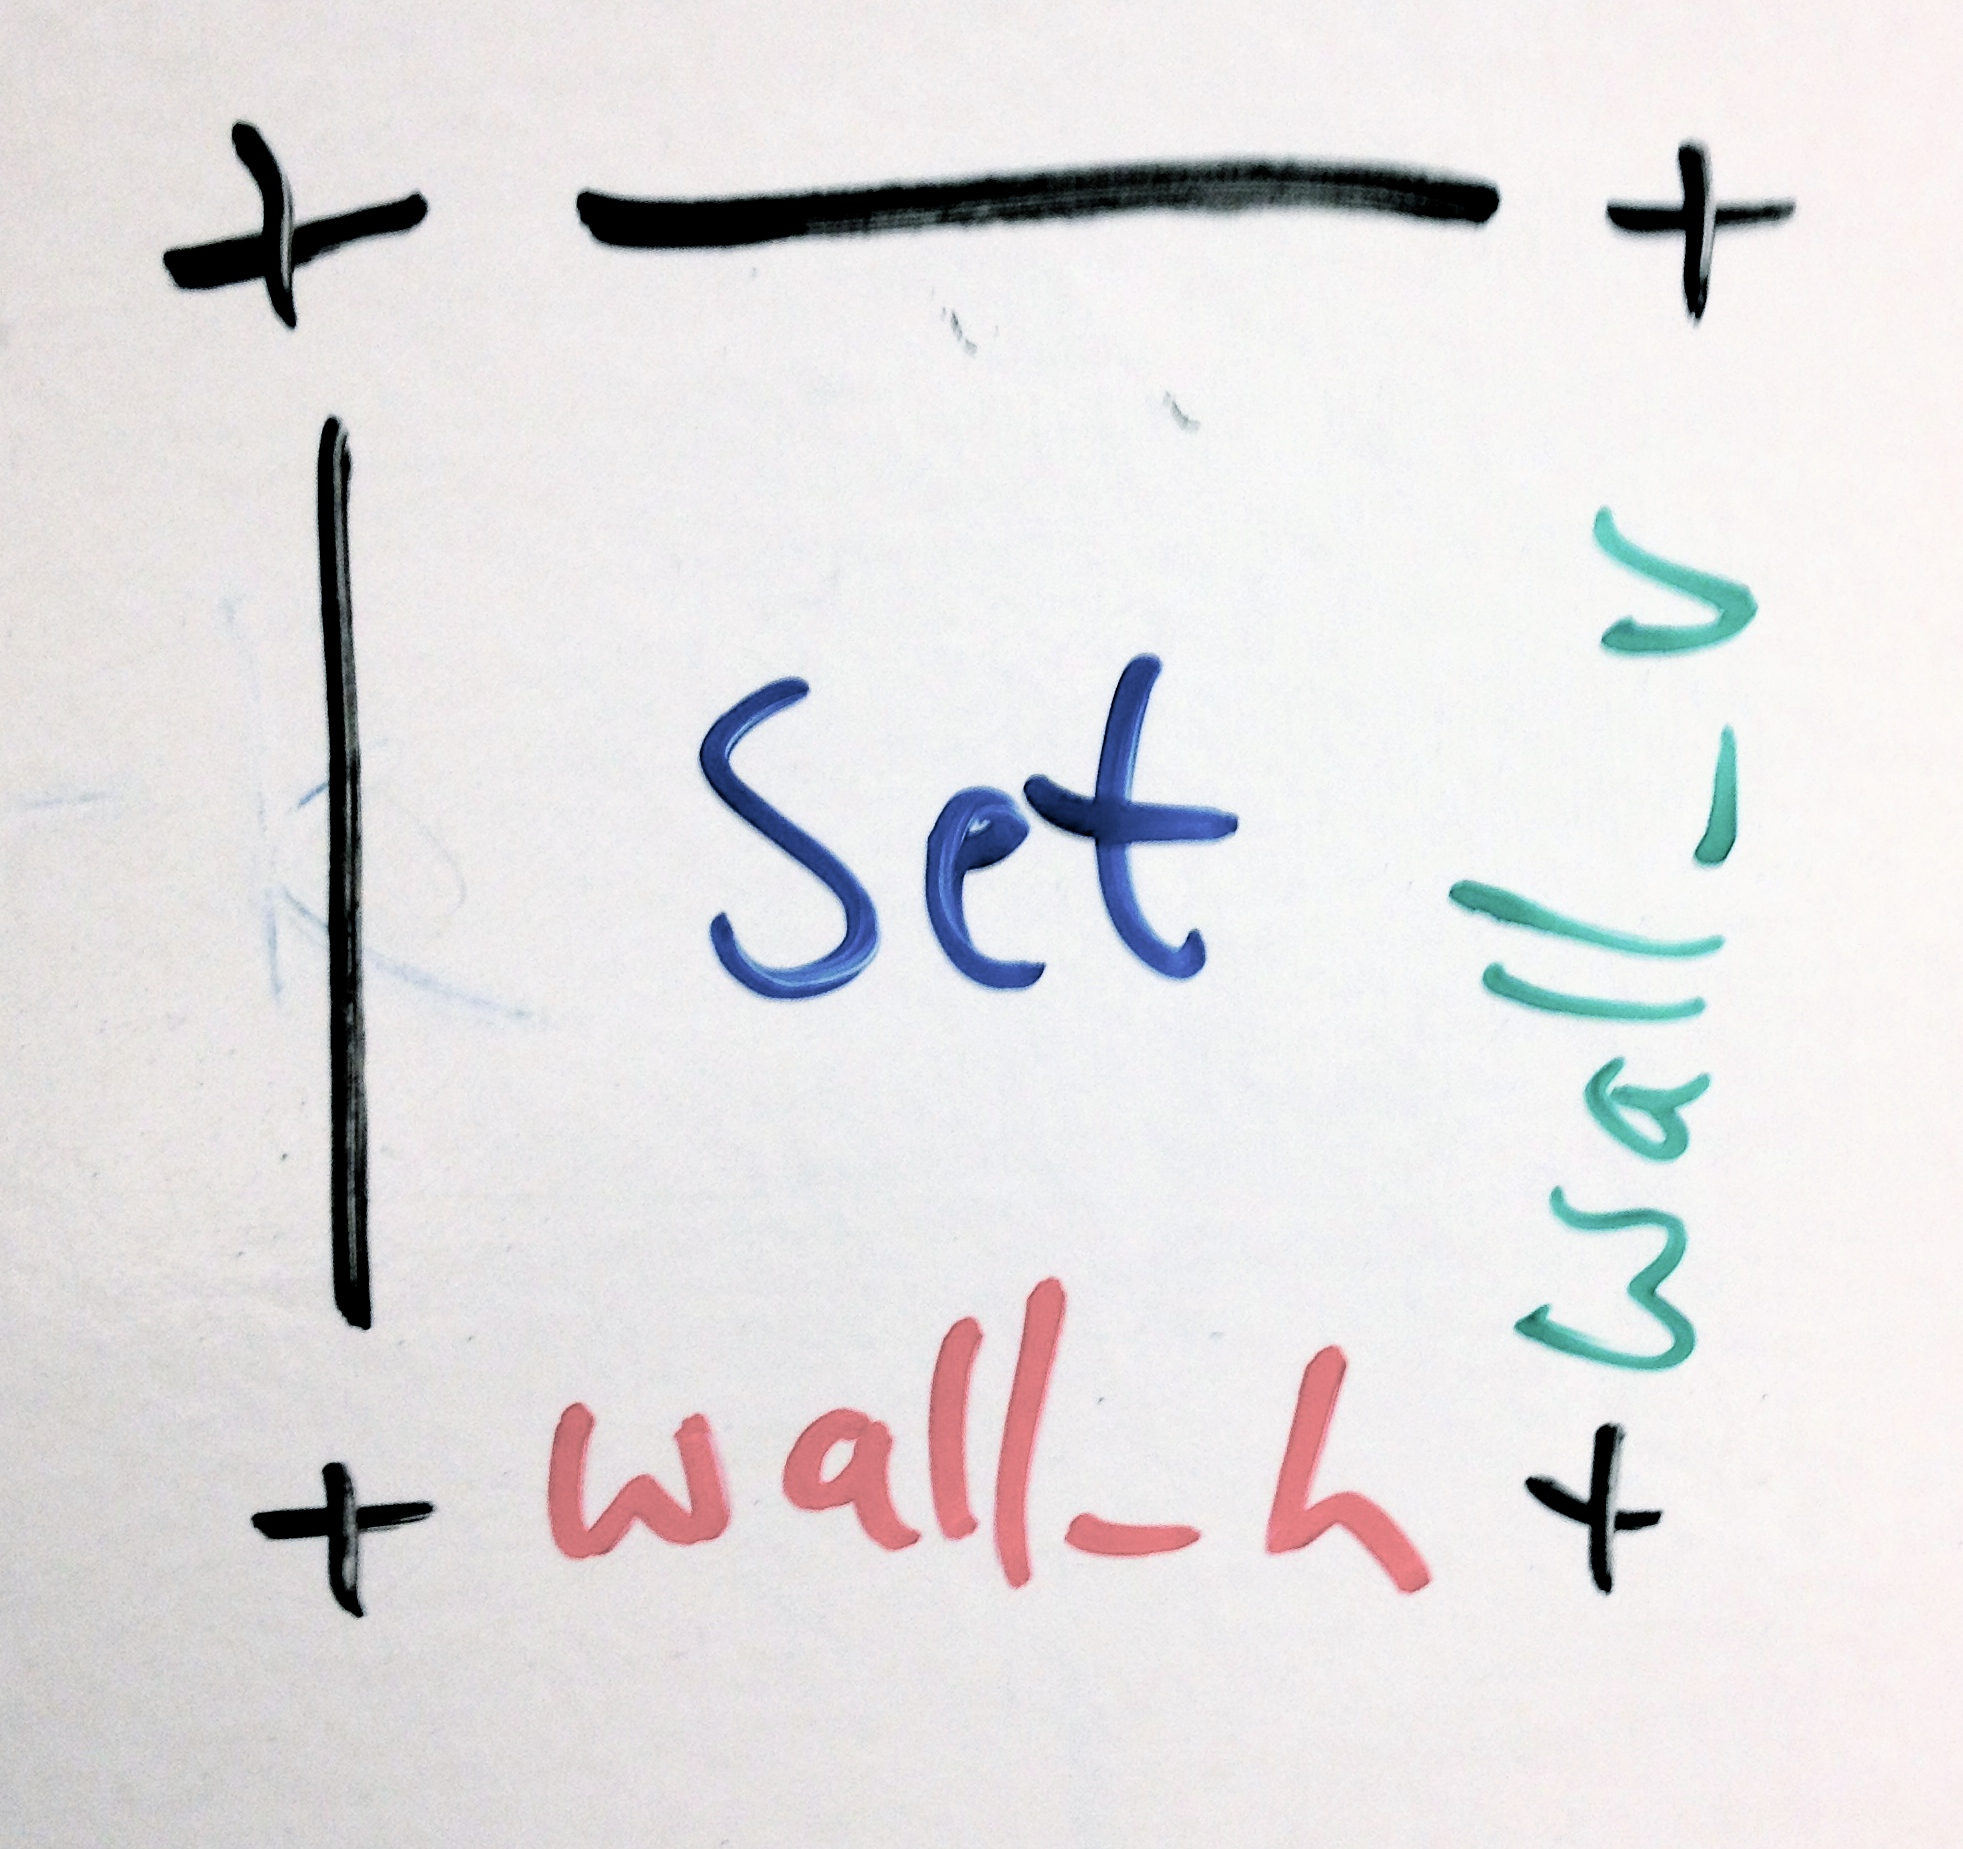 Set
wall_v
wall_h